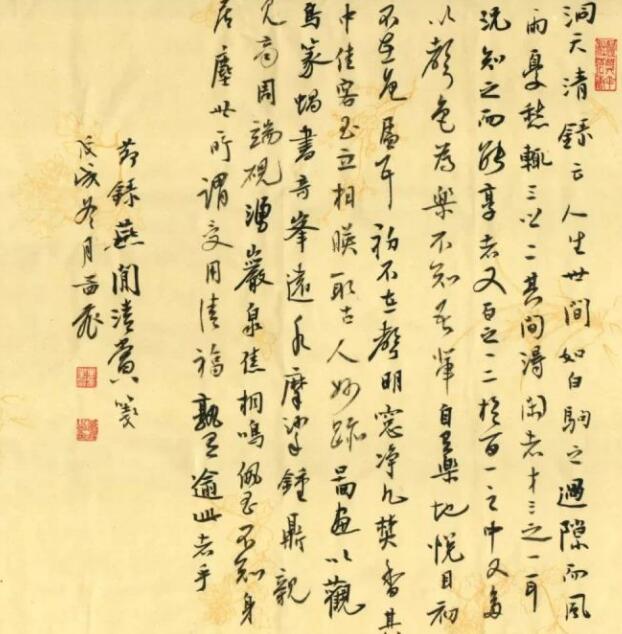 洞天清録云人生世間如白駒之過隙而風
雨憂愁輒三之二其間得閒者才三之一耳
況知之而能享者又百之一二於百一之中又多
以聲色為樂不知吾輩自有樂地悅目初
不在色盈耳初不在聲明窓净几焚香其
中佳客玉立相暎取古人妙跡圖畫以觀
鳥篆蝸書奇峯遠水摩挲鐘鼎親
見商周端硯湧巖泉焦桐鳴佩玉不知身
居塵世所謂受用清福孰有逾此者乎
節録燕閒清賞箋
戊戌冬月